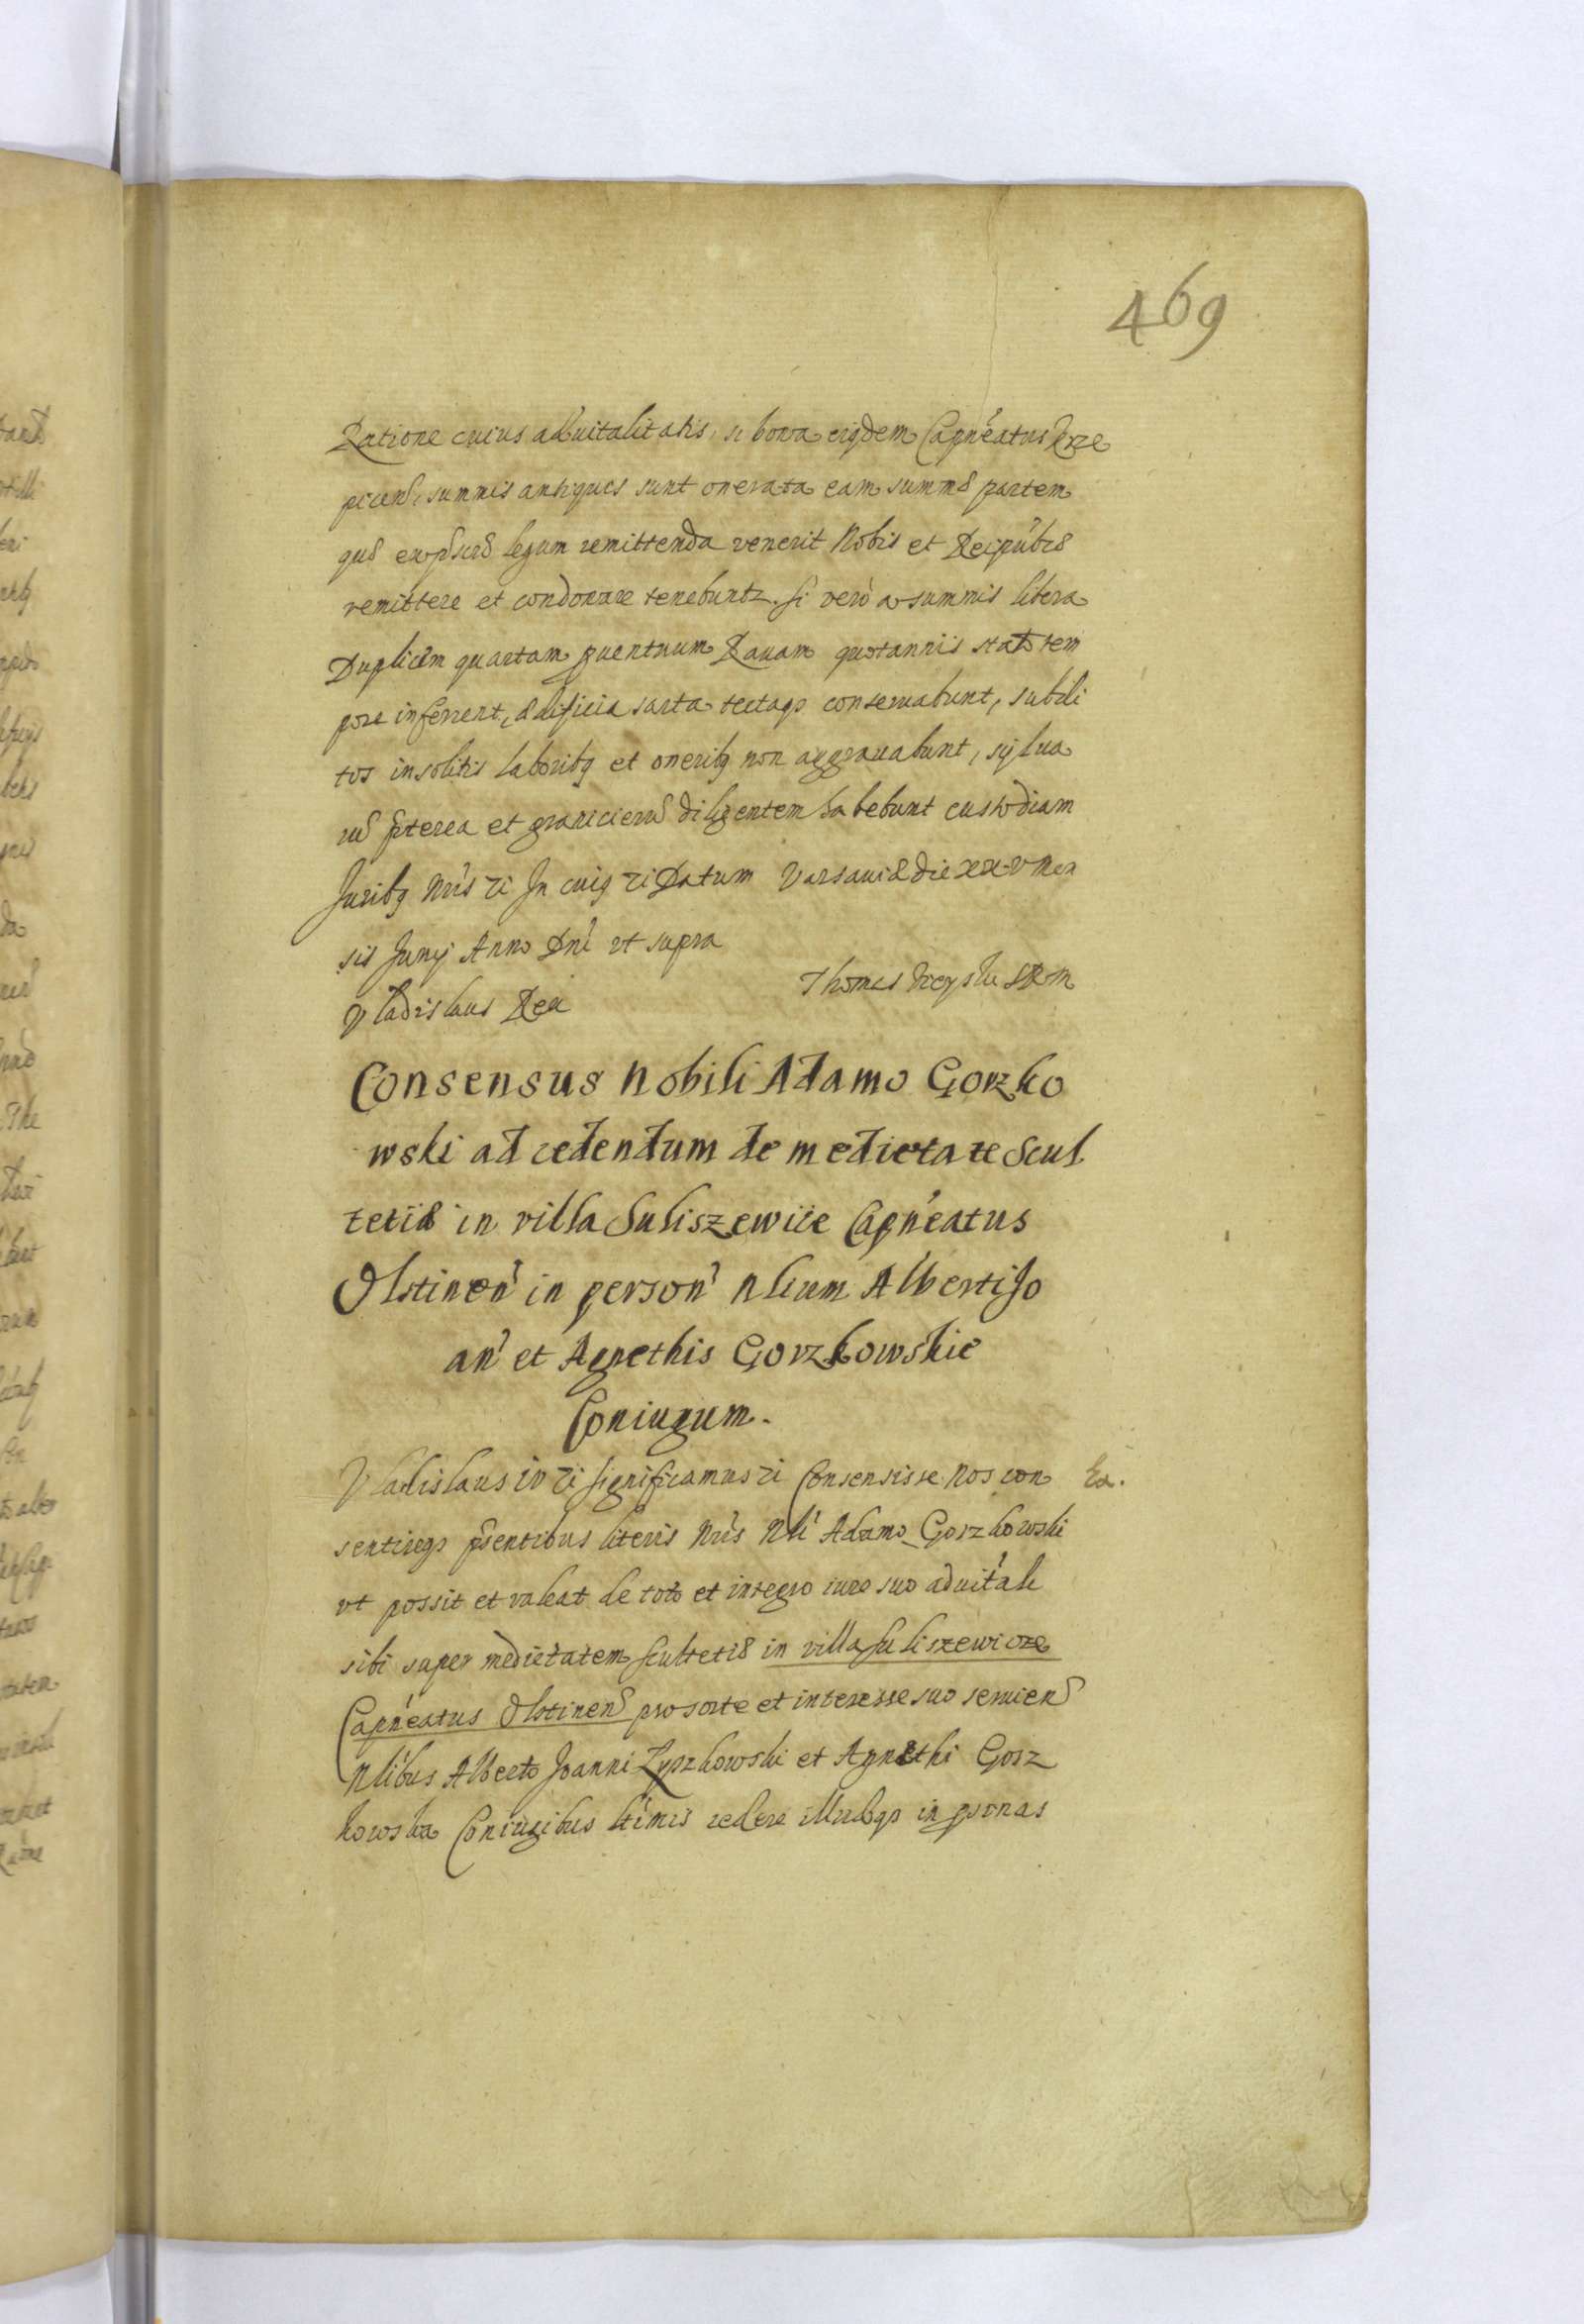 469
Ratione cuius aduitalitatis, si bona eiqdem Capnéatus Krze
picens, summis antiquis sunt onerata eam summæ partem
quæ ex pscro legum remittenda venerit Nobis et Reipúbcæ
remittere et condonare tenebuntz. si verò a summis libera
Duplicem quartam puentuum Rauam quotannis stato tem
pore inferrent, ædificia sarta tectaqз conseruabunt, subdi
tos insolitis laboribq et oneribq non aggrauabunt, syslua
rũ pterea et granicierũ diligentem habebunt custodiam
Juribq nris ꝛ In cuiq ꝛ Datum Varsauiæ die xxv Men
sis Junij Anno Dni vt supra
Vladislaus Rex
Thomas SRM
Consensus Nobili Adamo Gorzko
wski ad cedendum de medietate Scul
tetiæ in villa Suliszewice Capnéatus
Olstinen' in person' nlium Alberti Jo
an' et Agnethis Gorzkowskie
Coniugum.
Vladislaus IV ꝛ significamus ꝛ Consensisse Nos con
Ex.
sentireqз psentibus literis nris Nli Adamo Gorzkowski
vt possit et valeat de toto et integro iure suo aduitali
sibi super medietatem scultetiæ in villa Suliszewicze
Capnéatus Olstinens pro sorte et interesse suo seruiens
Nlibus Alberto Joanni Lypzkowski et Agnethi Gorz
kowska Coniugibus ltimis cedere illudqз in psonas